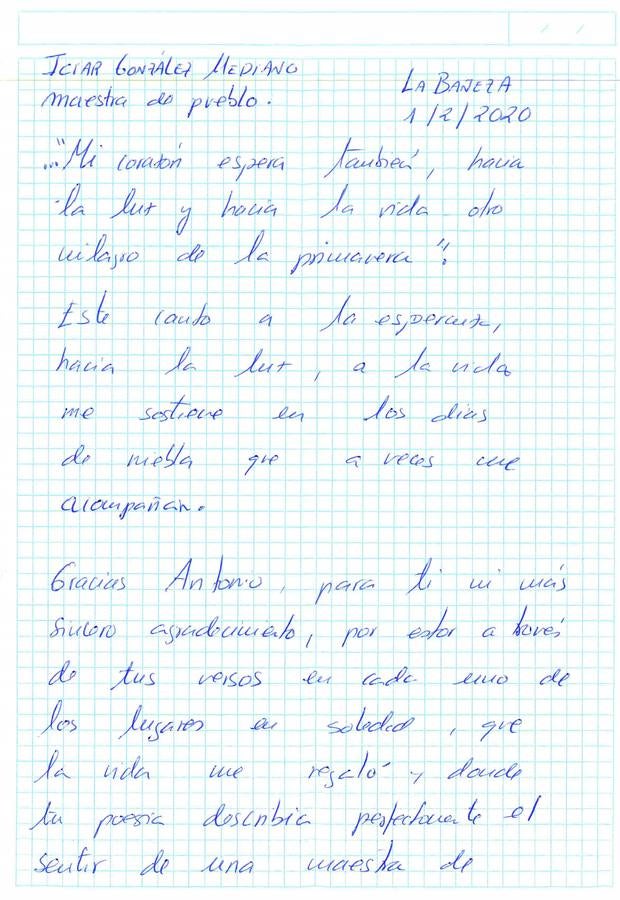 ICIAR GONZÁLEZ MEDIANO
maestra de pueblo.
LA BAÑEZA
1/2/2020
..."Mi corazón espera también, hacia
la luz y hacia la vida otro
milagro de la primavera".
Este canto a la esperanza,
hacia la luz, a la vida
me sostiene en los días
de niebla que a veces me
acompañan.
Gracias Antonio, para ti mi más
sincero agradecimiento, por estar a través
de tus versos en cada uno de
los lugares en soledad, que
la vida me regaló y donde
tu poesía describia perfectamente el
sentir de una maestra de